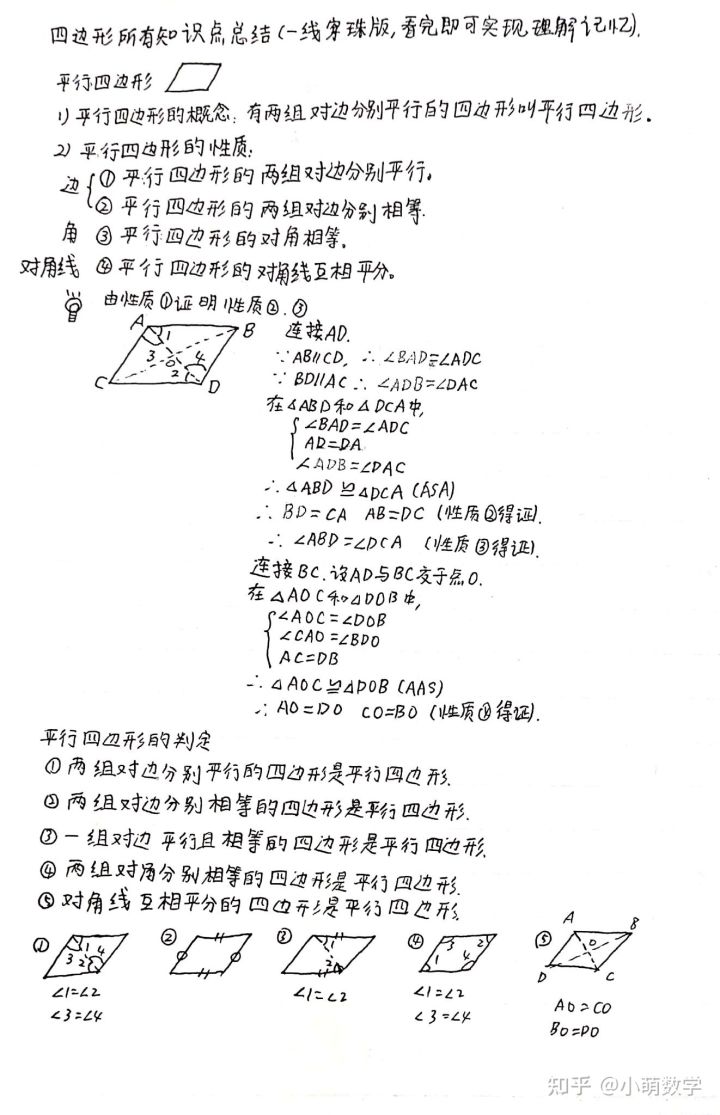 四边形所有知识点总结(一线穿珠版,看完即可实现理解记忆).
平行四边形
1) 平行四边形的概念:有两组对边分别平行的四边形叫平行四边形.
2) 平行四边形的性质:
边 ① 平行四边形的两组对边分别平行。
② 平行四边形的两组对边分别相等.
角 ③ 平行四边形的对角相等.
对角线 ④ 平行四边形的对角线互相平分。
由性质①证明性质②.③
A 1 B
3 O 4
2
C D
连接AD.
∵AB∥CD, ∴∠BAD=∠ADC
∵BD∥AC ∴∠ADB=∠DAC
在△ABD和△DCA中,
∠BAD=∠ADC
AD=DA
∠ADB=∠DAC
∴△ABD≌△DCA (ASA)
∴BD=CA AB=DC (性质②得证).
∴∠ABD=∠DCA (性质③得证).
连接BC.设AD与BC交于点O.
在△AOC和△DOB中,
∠AOC=∠DOB
∠CAO=∠BDO
AC=DB
∴△AOC≌△DOB (AAS)
∴AO=DO CO=BO (性质④得证).
平行四边形的判定
① 两组对边分别平行的四边形是平行四边形.
② 两组对边分别相等的四边形是平行四边形.
③ 一组对边平行且相等的四边形是平行四边形.
④ 两组对角分别相等的四边形是平行四边形.
⑤ 对角线互相平分的四边形是平行四边形.
① 1 4 3 2
∠1=∠2
∠3=∠4
②
③ 1 2
∠1=∠2
④ 3 2 1 4
∠1=∠2
∠3=∠4
⑤ A B O D C
AO=CO
BO=DO
知乎 @小萌数学